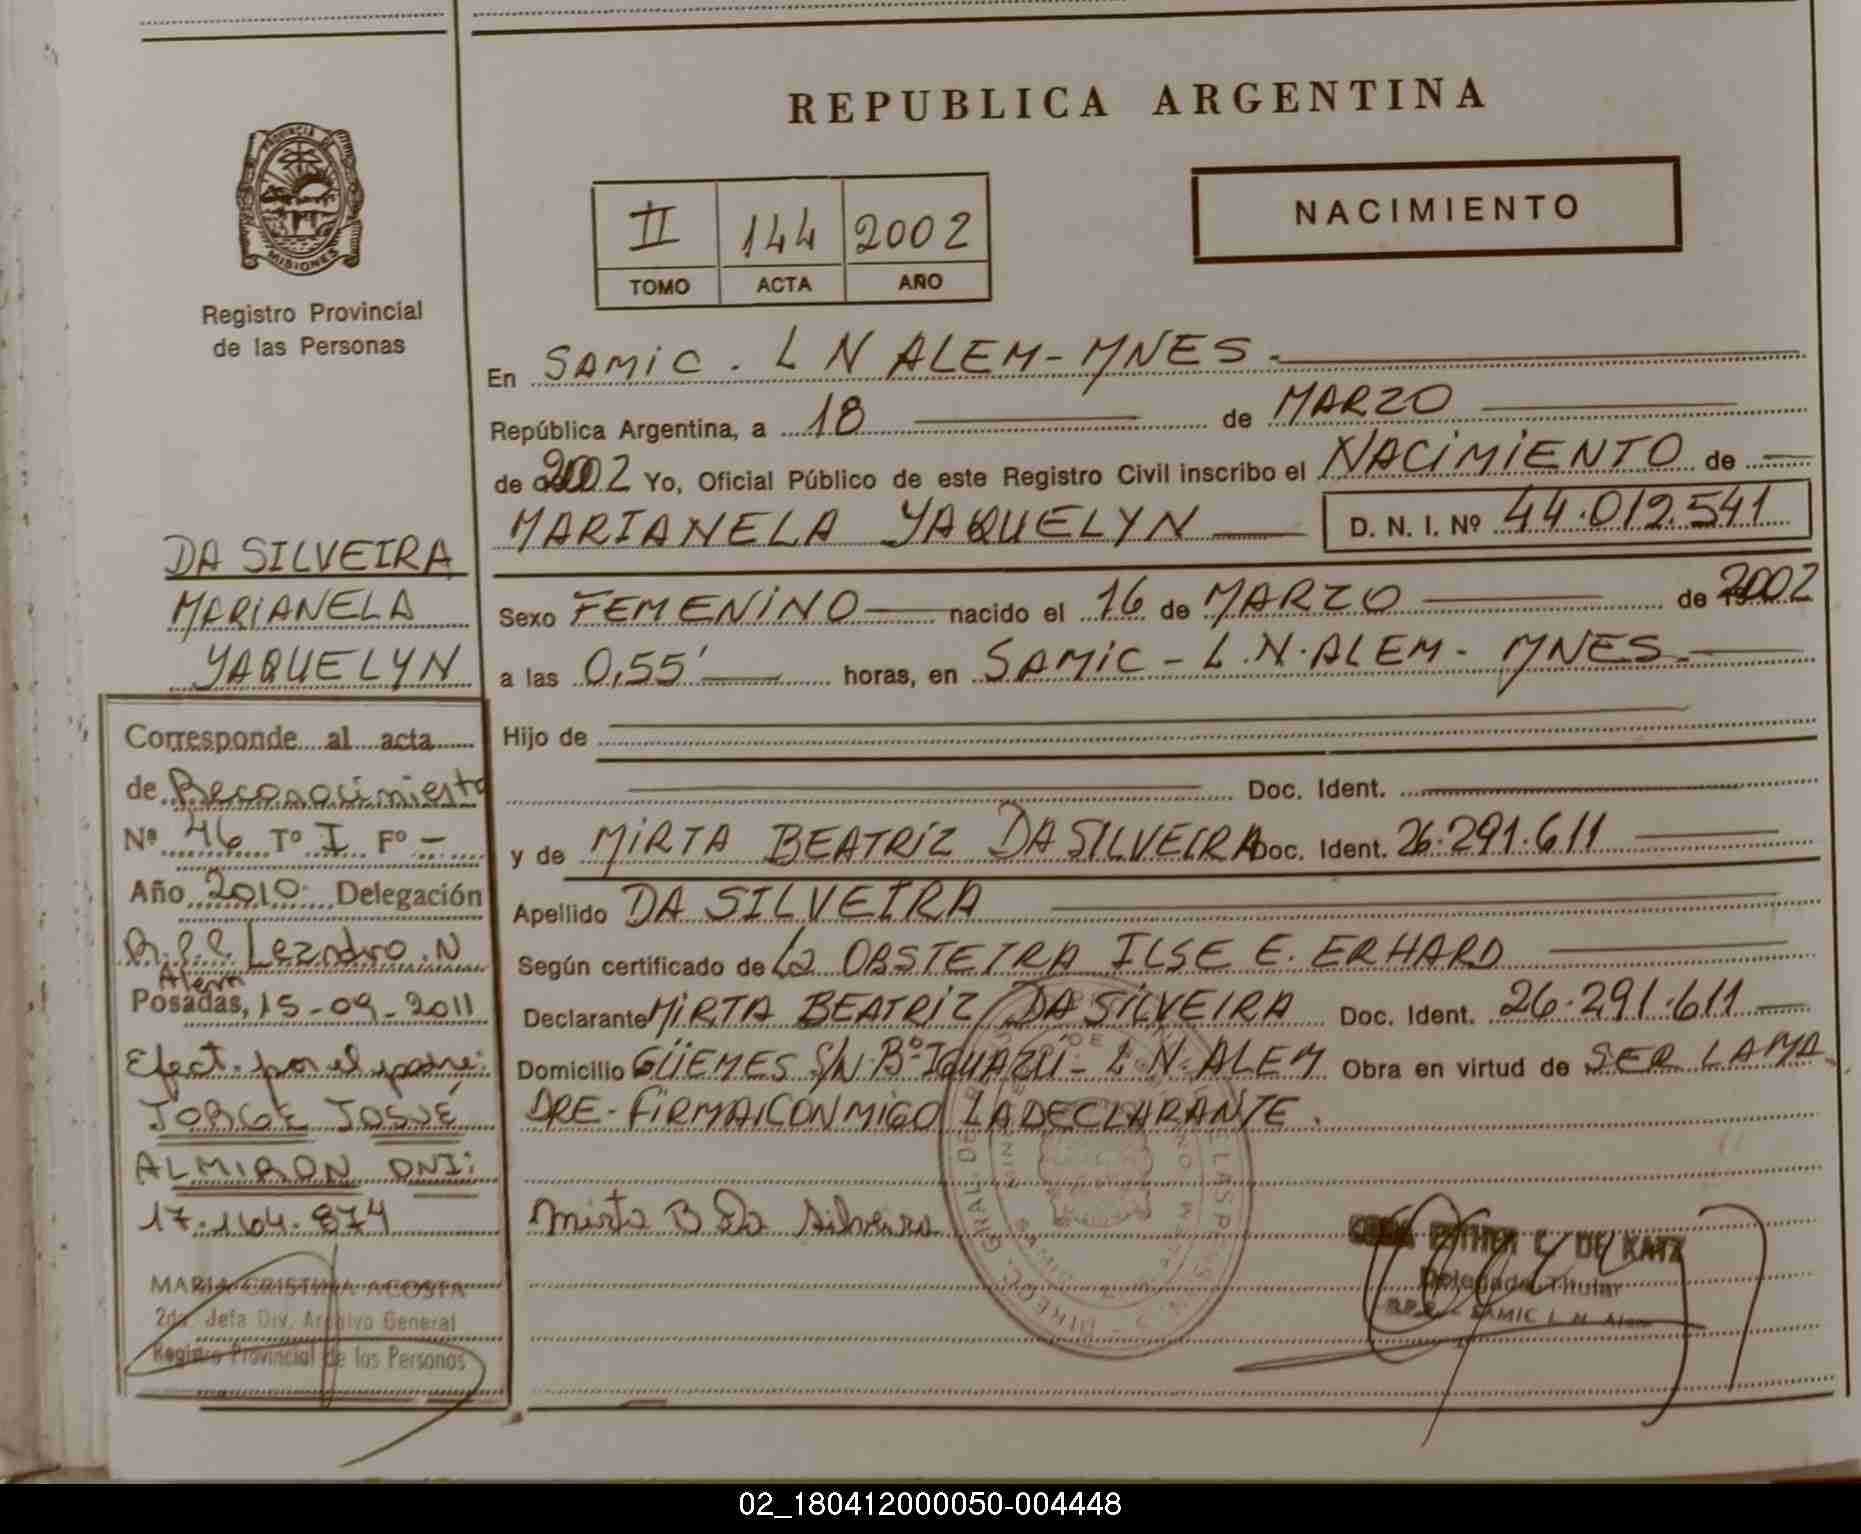 REPUBLICA ARGENTINA
PROVINCIA DE
MISIONES
Registro Provincial
de las Personas
II 144 2002
TOMO ACTA AÑO
NACIMIENTO
En SAMIC. L N ALEM-MNES.
República Argentina, a 18 de MARZO
de 2002 Yo, Oficial Público de este Registro Civil inscribo el NACIMIENTO de
MARIANELA YAQUELYN D. N. I. Nº 44.012.541
Sexo FEMENINO nacido el 16 de MARZO de 2002
a las 0,55' horas, en SAMIC - L.N.ALEM - MNES.
Hijo de
Doc. Ident.
y de MIRTA BEATRIZ DA SILVEIRA Doc. Ident. 26.291.611
Apellido DA SILVEIRA
Según certificado de La OBSTETRA ILSE E. ERHARD
Declarante MIRTA BEATRIZ DA SILVEIRA Doc. Ident. 26.291.611
Domicilio GÜEMES S/N Bº IGUAZU - L N ALEM Obra en virtud de SER LA MA
DRE - FIRMA CONMIGO LA DECLARANTE.
Mirta B Da Silveira
ESTHER C. DE KATZ
Delegada Titular
R.P.P. - SAMIC L. N. Alem
DA SILVEIRA
MARIANELA
YAQUELYN
Corresponde al acta
de Reconocimiento
Nº 46 Tº I Fº -
Año 2010 Delegación
R.P.P. Leandro N
Alem
Posadas, 15-09-2011
Efect. por el padre:
JORGE JOSUÉ
ALMIRON DNI:
17.164.874
MARIA CRISTINA ACOSTA
2da. Jefa Div. Archivo General
Registro Provincial de las Personas
02_180412000050-004448